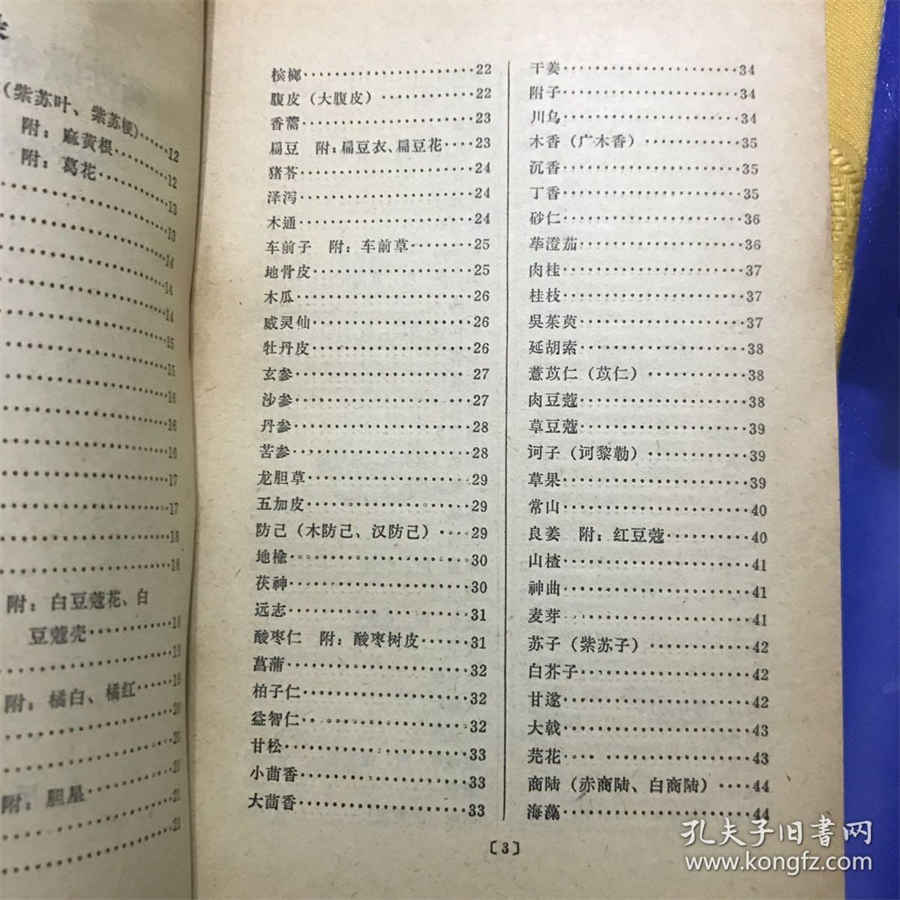 录
（紫苏叶、紫苏梗）……12
附：麻黄根……12
附：葛花……13
13
14
14
14
15
15
16
16
16
17
17
18
18
附：白豆蔻花、白
豆蔻壳……18
19
附：橘白、橘红……19
20
20
附：胆星……21
槟榔……22
腹皮（大腹皮）……22
香薷……23
扁豆　附：扁豆衣、扁豆花……23
猪苓……24
泽泻……24
木通……24
车前子　附：车前草……25
地骨皮……25
木瓜……26
威灵仙……26
牡丹皮……26
玄参……27
沙参……27
丹参……28
苦参……28
龙胆草……29
五加皮……29
防己（木防己、汉防己）……29
地榆……30
茯神……30
远志……31
酸枣仁　附：酸枣树皮……31
菖蒲……32
柏子仁……32
益智仁……32
甘松……33
小茴香……33
大茴香……33
干姜……34
附子……34
川乌……34
木香（广木香）……35
沉香……35
丁香……35
砂仁……36
荜澄茄……36
肉桂……37
桂枝……37
吳茱萸……37
延胡索……38
薏苡仁（苡仁）……38
肉豆蔻……38
草豆蔻……39
诃子（诃黎勒）……39
草果……39
常山……40
良姜　附：红豆蔻……40
山楂……41
神曲……41
麦芽……41
苏子（紫苏子）……42
白芥子……42
甘遂……42
大戟……43
芫花……43
商陆（赤商陆、白商陆）……44
海藻……44
〔3〕
孔夫子旧书网
www.kongfz.com